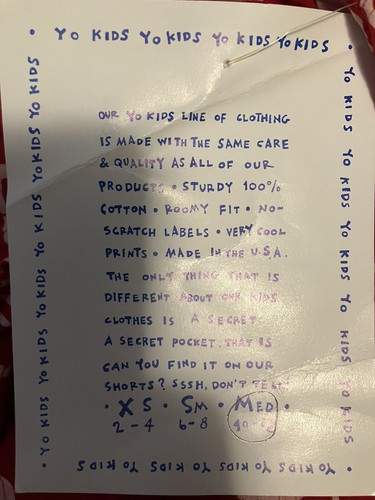 • YO KIDS YO KIDS YO KIDS YO KIDS •
YO KIDS YO KIDS YO KIDS YO KIDS •
OUR YO KIDS LINE OF CLOTHING
IS MADE WITH THE SAME CARE
& QUALITY AS ALL OF OUR
PRODUCTS • STURDY 100%
COTTON • ROOMY FIT • NO-
SCRATCH LABELS • VERY COOL
PRINTS • MADE IN THE U.S.A.
THE ONLY THING THAT IS
DIFFERENT ABOUT OUR KIDS
CLOTHES IS A SECRET.
A SECRET POCKET, THAT IS
CAN YOU FIND IT ON OUR
SHORTS? SSSH, DON'T TELL!
• XS • SM • MED •
2-4 6-8 10-12
• YO KIDS YO KIDS YO KIDS YO KIDS YO KIDS
YO KIDS YO KIDS YO KIDS YO KIDS •